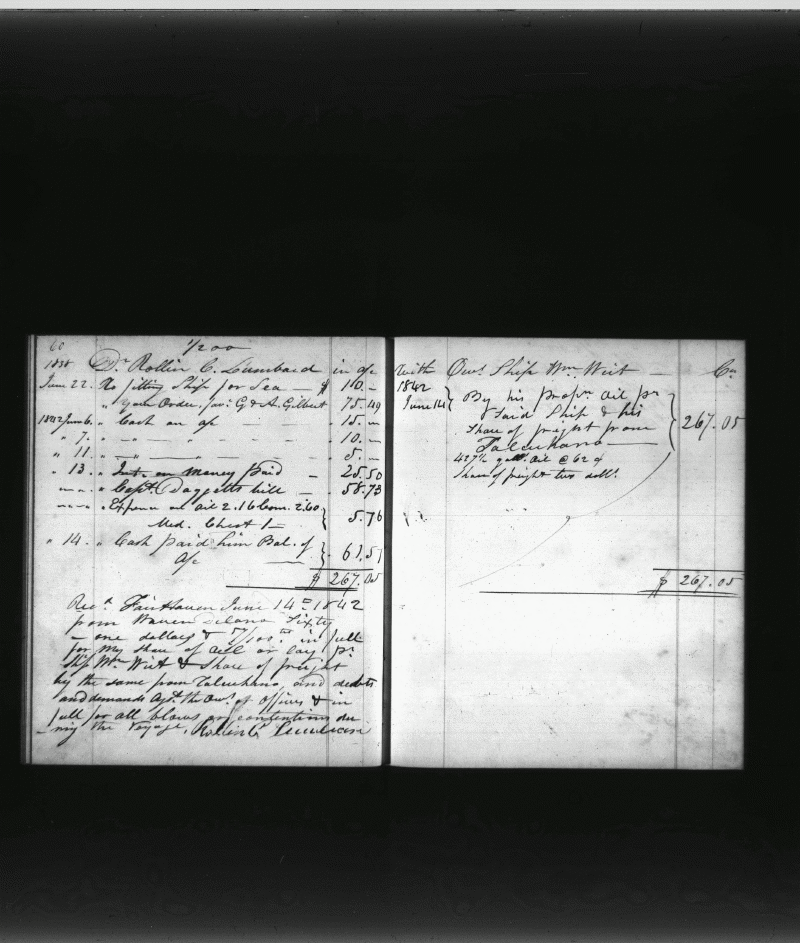 60 1/200
1838 Dr Rollin C. Lumbard in a/c
June 22. To fitting Ship for Sea — $ 110.—
" " your Order, fav. G & A. Gilbert 75.49
1842 June 6. " Cash on a/c — 15.—
" 7. " — " — " — 10.—
" 11. " — " — " — 5.—
" 13. " Int. on Money paid — 25.50
" — " — " Capt. Daggetts bill — 58.73
" — " — " Expense on oil 2.16 Com. 2.60 }
Med. Chest 1— } 5.76
" 14. " Cash paid him Bal. of }
a/c — } 61.57
$ 267.05
Recd. Fair Haven June 14th 1842
from Warren Delano Sixty
– one dollars & 57/100ths in full
for my share of oil or lay pr
Ship Wm Wirt & Share of freight
by the same from Talcuhano, and debts
and demands agst. the Owrs. of Officers & in
full for all blows or contentions du
– ring the Voyage. Rollin C. Lumbard
with Owrs. Ship Wm. Wirt — Cr.
1842
June 14 } By his propn. oil pr }
Said Ship & his
Share of freight from } 267.05
Talcuhano —
427½ galls. oil @ 62 ¢
Share of freight two dolls.
$ 267.05